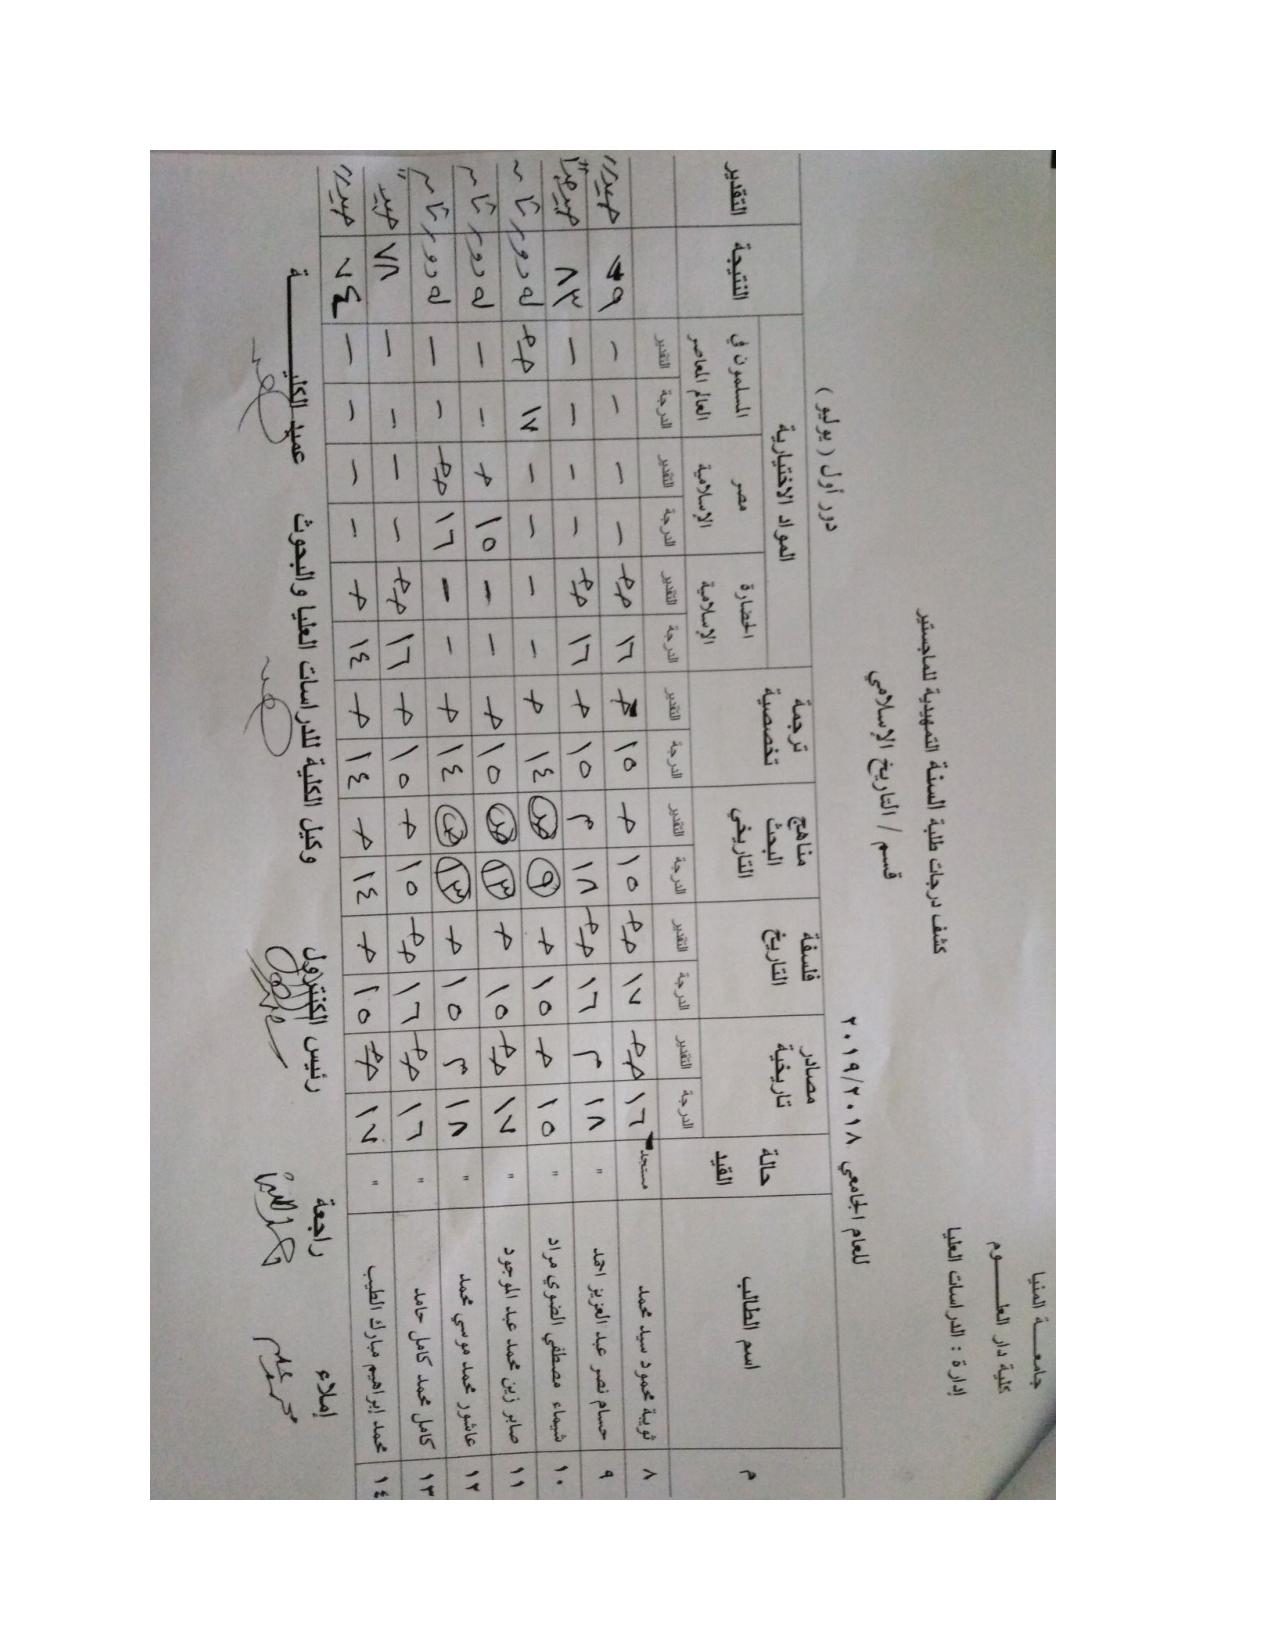 جامعــة المنيا
كلية دار العلــــــوم
إدارة : الدراسات العليا
كشف درجات طلبة السنة التمهيدية للماجستير
قسم / التاريخ الإسلامي
للعام الجامعي ٢٠١٩/٢٠١٨
دور أول ( يوليو )
م اسم الطالب حالة القيد مصادر تاريخية فلسفة التاريخ مناهج البحث التاريخي ترجمة تخصصية المواد الاختيارية النتيجة التقدير
الحضارة الإسلامية مصر الإسلامية المسلمون في العالم المعاصر
الدرجة التقدير الدرجة التقدير الدرجة التقدير الدرجة التقدير الدرجة التقدير الدرجة التقدير الدرجة التقدير
٨ ثويبة محمود سيد محمد مستجد ١٦ جج ١٧ جج ١٥ ج ١٥ ج ١٦ جج - - - - ٧٩ جيد
٩ حسام نصر عبد العزيز احمد " ١٨ م ١٦ جج ١٨ م ١٥ ج ١٦ جج - - - - ٨٣ جيد جدا
١٠ شيماء مصطفي الضوي مراد " ١٥ ج ١٥ ج ٩ ض ١٤ ج - - - - ١٧ جج له دور ثان
١١ صابر زين محمد عبد الموجود " ١٧ جج ١٥ ج ١٣ ض ١٥ ج - - ١٥ ج - - له دور ثان
١٢ عاشور محمد موسي محمد " ١٨ م ١٥ ج ١٣ ض ١٤ ج - - ١٦ جج - - له دور ثان
١٣ كامل محمد كامل حامد " ١٦ جج ١٦ جج ١٥ ج ١٥ ج ١٦ جج - - - - ٧٨ جيد
١٤ محمد إبراهيم مبارك الطيب " ١٧ جج ١٥ ج ١٤ ج ١٤ ج ١٤ ج - - - - ٧٤ جيد
إملاء راجعة رئيس الكنترول وكيل الكلية للدراسات العليا والبحوث عميد الكليــــــــة